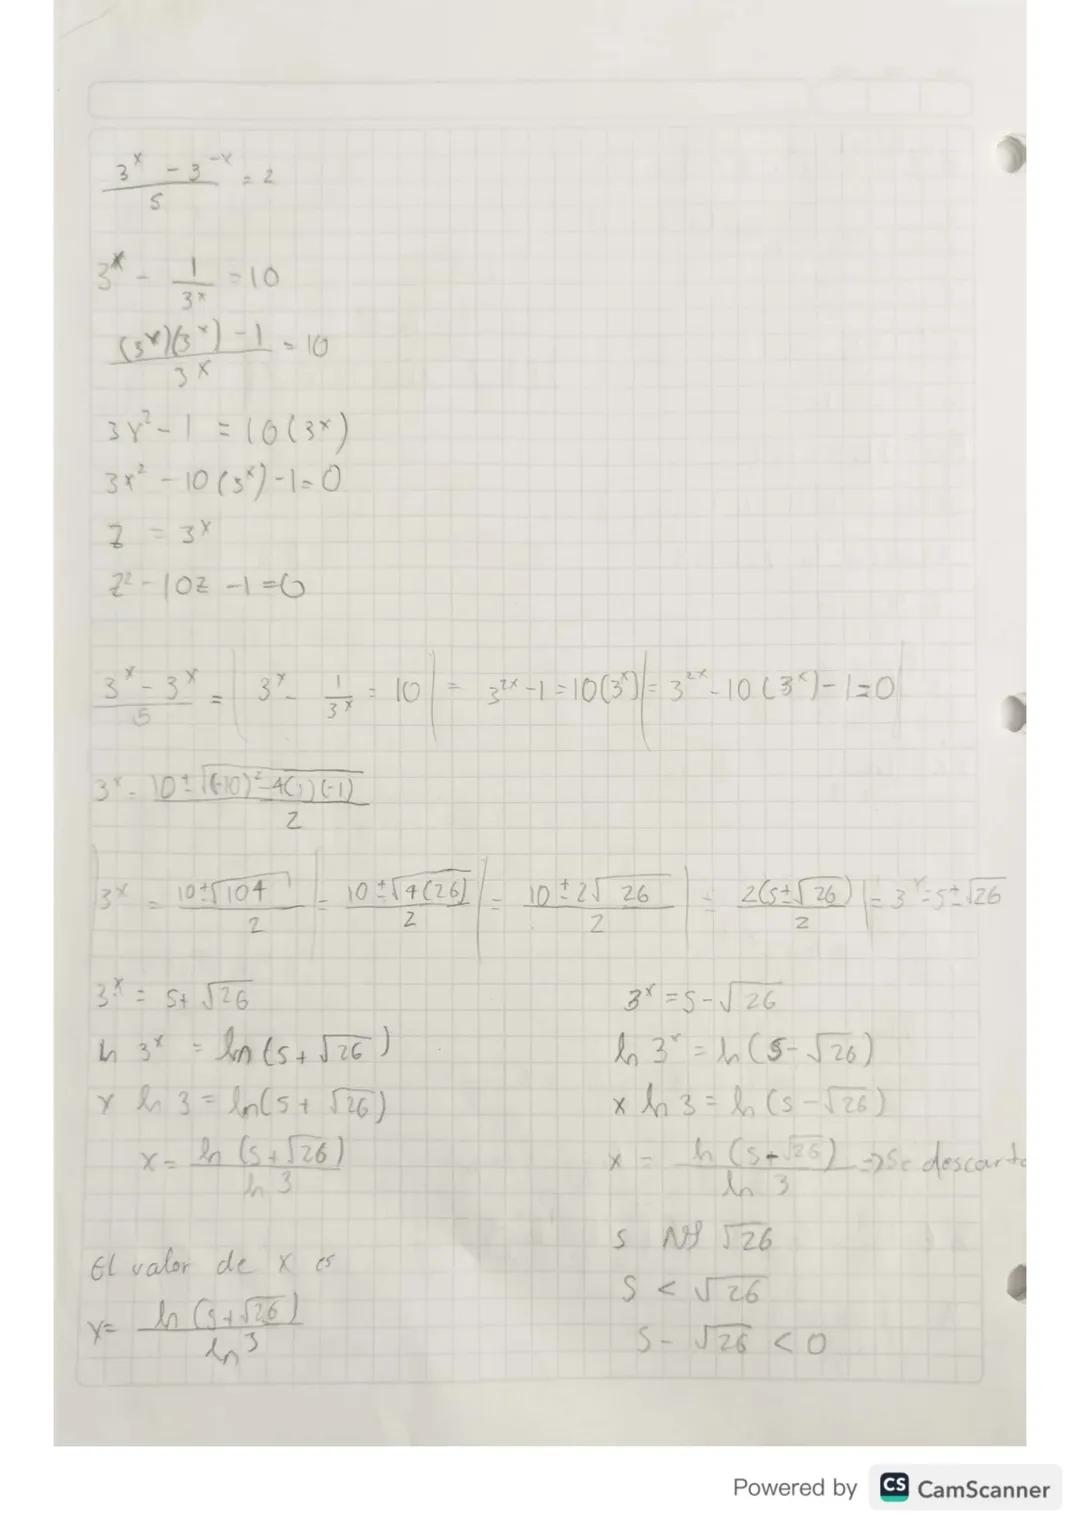 3^x - 3^-x / 5 = 2
3^x - 1/3^x = 10
(3^x)(3^x) - 1 / 3^x = 10
3x² - 1 = 10(3^x)
3x² - 10(3^x) - 1 = 0
z = 3^x
z² - 10z - 1 = 0
3^x - 3^x / 5 = | 3^x - 1/3^x = 10 | = 3^2x - 1 = 10(3^x) | = 3^2x - 10(3^x) - 1 = 0 |
3^x = 10 ± √(-10)² - 4(1)(-1) / 2
| 3^x = 10 ± √104 / 2 | = 10 ± √4(26) / 2 | = 10 ± 2√26 / 2 | = 2(5 ± √26) / 2 | = 3^x = 5 ± √26
3^x = 5 + √26
ln 3^x = ln(5 + √26)
x ln 3 = ln(5 + √26)
x = ln(5 + √26) / ln 3
El valor de x es
x = ln(5 + √26) / ln 3
3^x = 5 - √26
ln 3^x = ln(5 - √26)
x ln 3 = ln(5 - √26)
x = ln(5 - √26) / ln 3 => Se descarta
5 √26
5 < √26
5 - √26 < 0
Powered by CS CamScanner